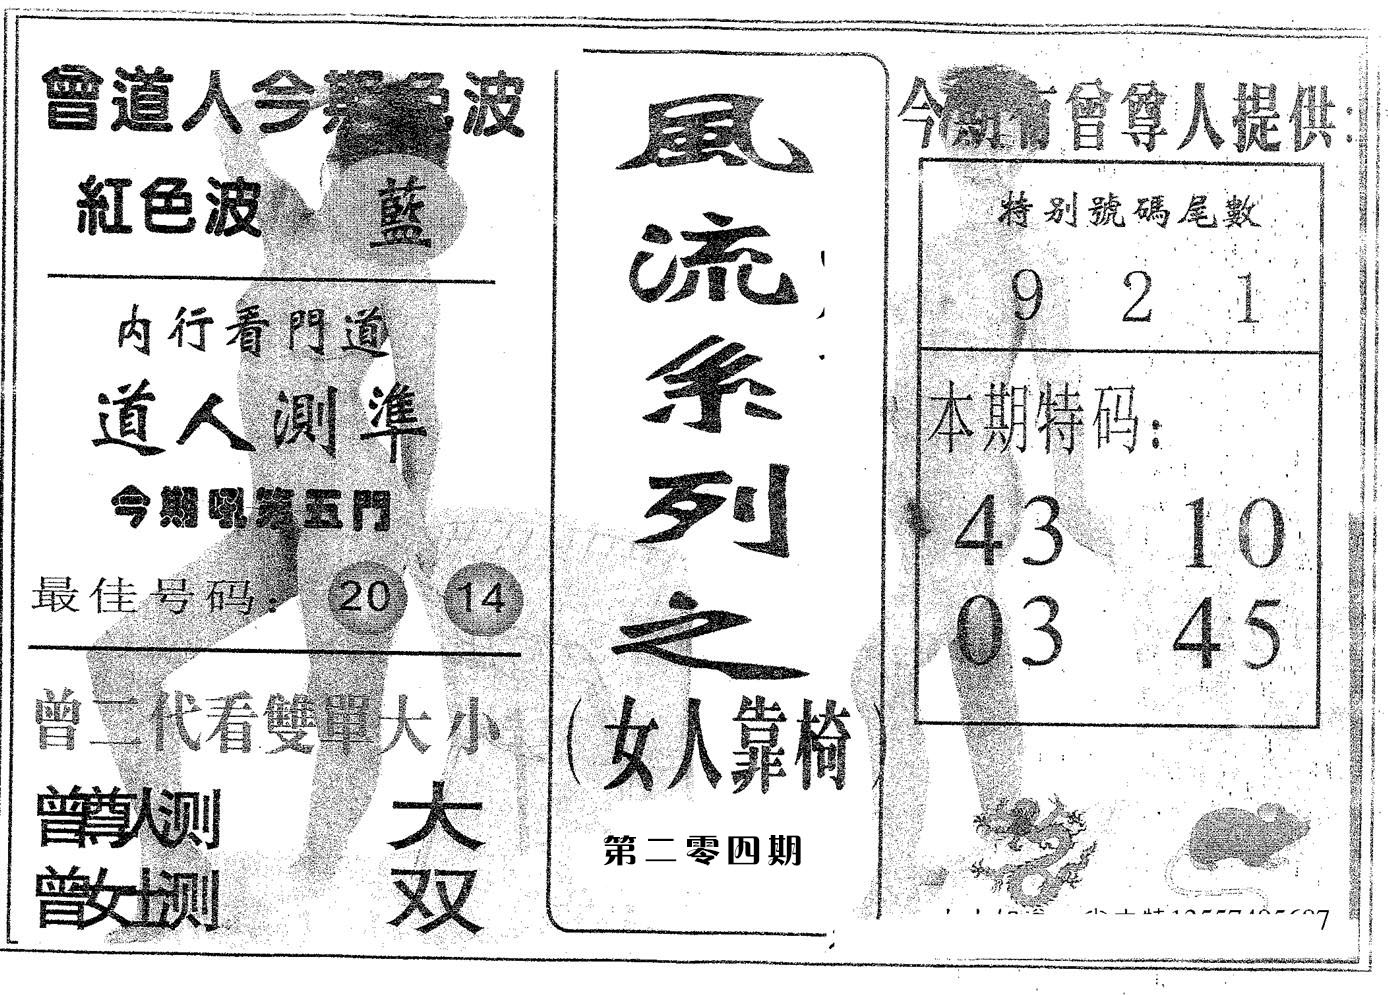 曾道人今期色波
紅色波 藍
内行看門道
道人測準
今期吼第五門
最佳号码: 20 14
曾二代看雙單大小
曾尊人测 大
曾女士测 双
風流系列之
(女人靠椅)
第二零四期
今期有曾尊人提供:
特别號碼尾數
9 2 1
本期特码:
43 10
03 45